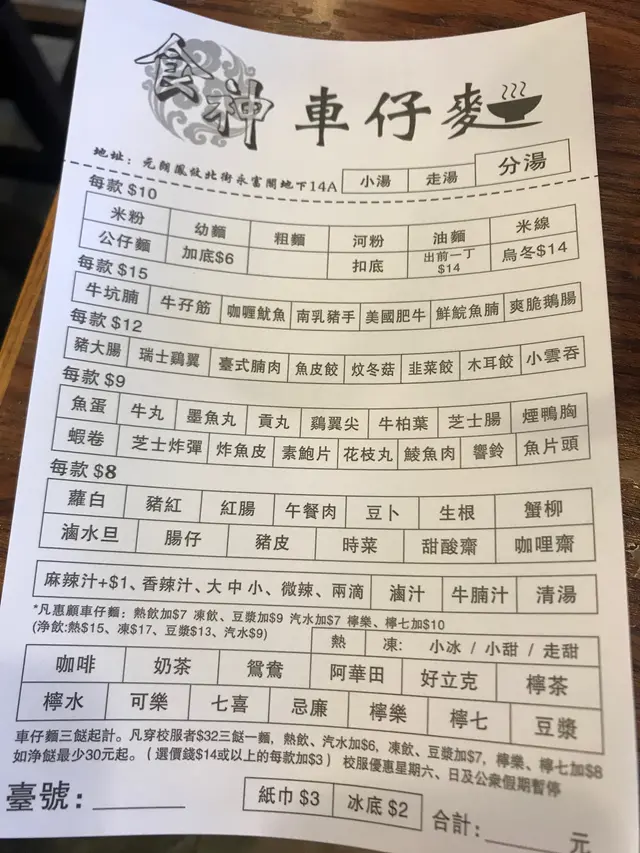 食神 車仔麥
地址：元朗鳳攸北街永富閣地下14A 小湯 走湯 分湯
每款 $10
米粉 幼麵 粗麵 河粉 油麵 米線
公仔麵 加底$6 扣底 出前一丁$14 烏冬$14
每款 $15
牛坑腩 牛孖筋 咖喱魷魚 南乳豬手 美國肥牛 鮮鯇魚腩 爽脆鵝腸
每款 $12
豬大腸 瑞士鷄翼 臺式腩肉 魚皮餃 炆冬菇 韭菜餃 木耳餃 小雲吞
每款 $9
魚蛋 牛丸 墨魚丸 貢丸 鷄翼尖 牛柏葉 芝士腸 煙鴨胸
蝦卷 芝士炸彈 炸魚皮 素鮑片 花枝丸 鯪魚肉 響鈴 魚片頭
每款 $8
蘿白 豬紅 紅腸 午餐肉 豆卜 生根 蟹柳
滷水旦 腸仔 豬皮 時菜 甜酸齋 咖哩齋
麻辣汁+$1、香辣汁、大 中 小、微辣、兩滴 滷汁 牛腩汁 清湯
*凡惠顧車仔麵：熱飲加$7 凍飲、豆漿加$9 汽水加$7 檸樂、檸七加$10
(净飲:熱$15、凍$17、豆漿$13、汽水$9) 熱 凍: 小冰 / 小甜 / 走甜
咖啡 奶茶 鴛鴦 阿華田 好立克 檸茶
檸水 可樂 七喜 忌廉 檸樂 檸七 豆漿
車仔麵三餸起計。凡穿校服者$32三餸一麵，熱飲、汽水加$6，凍飲、豆漿加$7，檸樂、檸七加$8
如净餸最少30元起。（選價錢$14或以上的每款加$3） 校服優惠星期六、日及公衆假期暫停
臺號：______ 紙巾 $3 冰底 $2 合計：______元